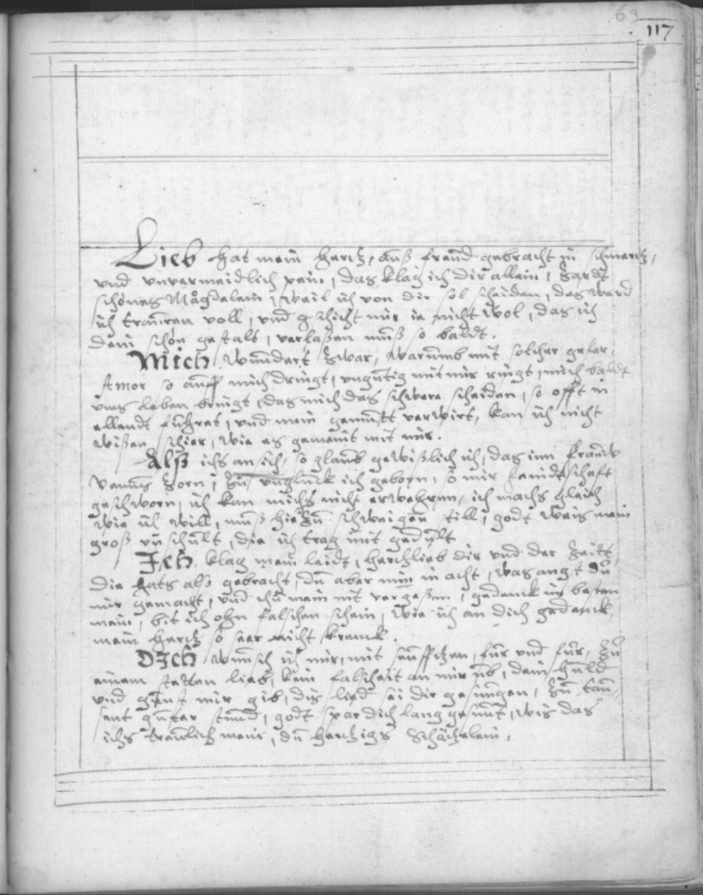 63
117
Lieb hat mein hertz, auß freud gebracht in schmertz,
und unvermeidlich pein, das klag ich dir allein, zartes
schönes Mägdelein, weil ich von dir sol scheiden, des ward
ich trauren voll, und gschicht mir ie nicht wol, das ich
dein schön gestalt, verlaßen muß so baldt.
Mich wundert zwar, warumb mit solcher gefar
Amor so auff mich dringt, ungütig mit mir ringt, mich baldt
umbs leben bringt, das mich das schwere scheiden, so offt in
ellendt führet, und mein gemütt verwirt, kan ich nicht
wißen schier, wie es gemeint mit mir.
Alß ichs an sich, so glaub gewißlich ich, das im
Venus zorn, zu unglück ich geborn, so mir feindtschafft
geschworn, ich kan michs nicht erwehren, ich machs gleich
wie ich will, muß hiezu schweigen still, godt weis mein
groß un schult, die ich trag mit gedult
Ich klag mein leidt, hertzlieb dir und der
die hats also gebracht, du aber nim in acht, was angst du
mir gemacht, und thu mein nit vergeßen, gedenck im besten
mein, bit ich ohn falschen schein, wie ich an dich gedenck,
mein hertz so seer nicht krenck.
Dich wunsch ich mir, mit seufftzen, für und für, zu
einem steten lieb, kein falscheit an mir üb, dein huld
und gunst mir gib, dis lied sei dir gesungen, zu tau-
sent guter stund, godt spar dich lang gesunt, wis das
ichs treulich mein, du hertzigs Schätzelein.